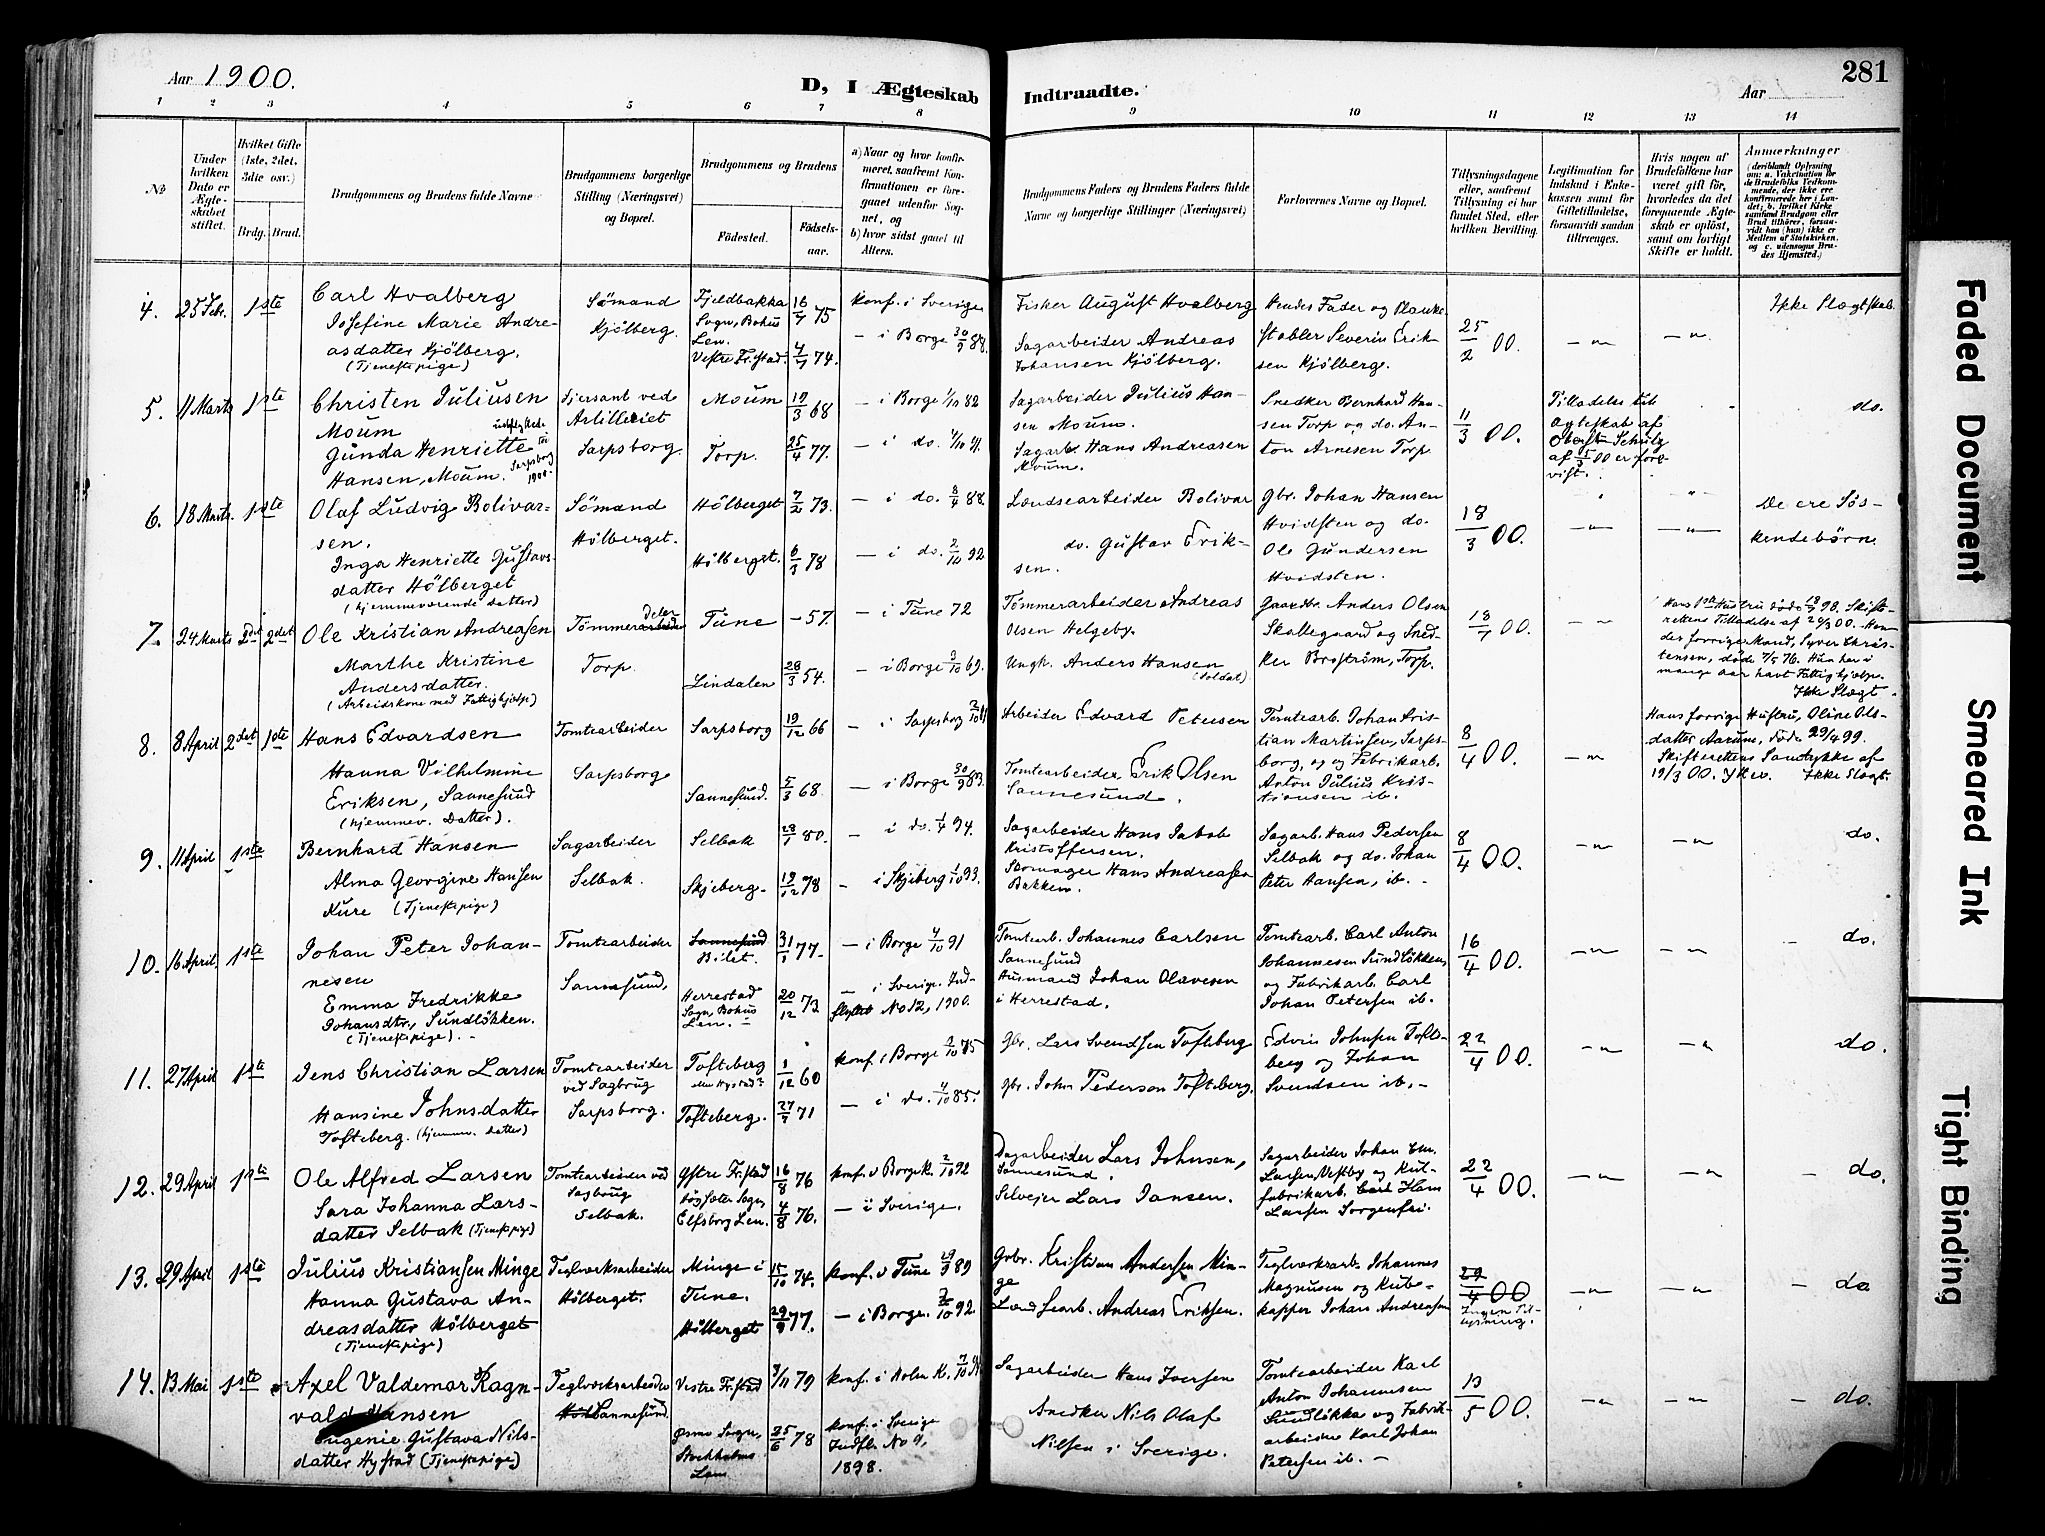 Aar 1900.
D, I Ægteskab
Indtraadte.
Aar
281
1 2 3 4 5 6 7 8 9 10 11 12 13 14
No
Under hvilken Dato er Ægteskabet stiftet.
Hvilket Gifte (1ste, 2det, 3die osv.)
Brdg. Brud.
Brudgommens og Brudens fulde Navne
Brudgommens borgerlige Stilling (Næringsvei) og Bopæl.
Brudgommens og Brudens
Fødested.
Fødselsaar.
a) Naar og hvor konfirmeret, saafremt Konfirmationen er foregaaet udenfor Sognet, og
b) hvor sidst gaaet til Alters.
Brudgommens Faders og Brudens Faders fulde Navne og borgerlige Stillinger (Næringsvei)
Forlovernes Navne og Bopæl.
Tillysningsdagene eller, saafremt Tillysning ei har fundet Sted, efter hvilken Bevilling.
Legitimation for Indskud i Enkekassen samt for Giftetilladelse, forsaavidt saadan tiltrænges.
Hvis nogen af Brudefolkene har været gift før, hvorledes da det foregaaende Ægteskab er opløst, samt om lovligt Skifte er holdt.
Anmærkninger
4. 25 Febr. 1ste
Carl Hvalberg
Josefine Marie Andre-
asdatter Kjölberg.
(Tjenestepige)
Sömand
Kjölberg.
Fjeldbakka
Sogn, Bohus
Len.
Vestre Fr.stad.
16/7 75
4/7 74.
konf. i Sverige
— i Borge 30/9 88.
Fisker August Hvalberg
Sagarbeider Andreas
Johansen Kjölberg.
Hendes Fader og Planke-
stabler Severin Erik-
sen Kjölberg.
25/2 00.
Ikke Slægtskab.
5. 11 Marts 1ste
Christen Juliusen
Moum
Gunda Henriette
Hansen, Moum.
Sarpsborg
1900
Sjersant ved
Artilleriet
Sarpsborg.
Moum
Torp.
19/3 68
25/4 77.
— i Borge 1/10 82
— i do. 4/10 91.
Sagarbeider Julius Han-
sen Moum.
Sagarb. Hans Andreasen
Moum.
Snedker Bernhard Han-
sen Torp og do. An-
ton Arnesen Torp
11/3 00.
Tilladelse til
Ægteskab af
Oberst Schulz
af 5/3 00 er fore-
vist.
do.
6. 18 Marts. 1ste
Olaf Ludvig Bolivar-
sen.
Inga Henriette Gustavs-
datter Hölberget
(hjemmeværende datter)
Sömand
Hölberget.
Hölberget
Hölberget.
7/2 73.
6/3 78
— i do. 8/4 88.
— i do. 2/10 92
Lændsearbeider Bolivar
do. Gustav Erik-
sen.
Gbr. Johan Hansen
Hvidsten og do.
Ole Gundersen
Hvidsten.
18/3 00.
De ere Søs-
kendebörn.
7. 24 Marts 2det 2det
Ole Kristian Andreasen
Marthe Kristine
Andersdatter.
(Arbeidskone med Fattighjælp)
Torp.
Tune
Lindalen
— 57.
28/3 54.
— i Tune 72
— i Borge 3/10 69.
Tömmerarbeider Andreas
Olsen Helgeby.
Ungk. Anders Hansen
(Soldat)
Gaardbr. Anders Olsen
Skallegaard og Sned-
ker Broström, Torp.
18/1 00.
Hans 1ste Hustru døde 18/9 98. Skift-
rettens Tilladelse af 20/3 00. Hen-
des forrige Mand, Syver Chris-
tensen, døde 7/5 76. Hun har i
mange aar havt Fattighjælp.
Ikke Slægt.
8. 8 April 2det 1ste
Hans Edvardsen
Hanna Vilhelmine
Eriksen, Sannesund
(hjemmev. Datter).
Tomtearbeider
Sarpsborg
Sarpsborg
Sannesund.
19/12 66
5/3 68
— i Sarpsborg
— i Borge 30/9 83.
Arbeider Edvard Petersen
Tomtearbeider Erik Olsen
Sannesund.
Tomtearb. Johan Kris-
tian Martinsen, Sarps-
borg, og Fabrikarb.
Anton Julius Kris-
tiansen ib.
8/4 00.
Hans forrige Hustru, Oline Ols-
datter Aarum, døde 29/4 99.
Skifterettens Samtykke af
19/3 00. Ikke Slægt.
9. 11 April 1ste
Bernhard Hansen
Alma Georgine Hansen
Kure (Tjenestepige)
Sagarbeider
Selbak.
Selbak
Skjeberg.
28/7 80.
19/12 78
— i do. 1/4 94.
— i Skjeberg 1/10 93.
Sagarbeider Hans Jakob
Kristoffersen.
Skomager Hans Andreassen
Bakken.
Sagarb. Hans Pedersen
Selbak og do. Johan
Peter Hansen, ib.
8/4 00.
do.
10. 16 April. 1ste
Johan Peter Johan-
nesen
Emma Fredrikke
Johansdtr., Sundlökken.
(Tjenestepige).
Tomtearbeider
Sannesund.
Sannesund
Bilet.
Herrestad
Sogn, Bohus
Len.
31/1 77
20/12 73
— i Borge 4/10 91
— i Sverige. Ind-
flyttet No 12, 1900.
Tomtearb. Johannes Carlsen
Sannesund
Husmand Johan Olavesen
i Herrestad.
Tomtearb. Carl Anton
Johannesen Sundlökken
og Fabrikarb. Carl
Johan Petersen ib.
16/4 00.
do.
11. 27 April 1ste
Jens Christian Larsen
Hansine Johnsdatter
Tofteberg. (hjemmev. datter)
Tomtearbeider
ved Sagbrug
Sarpsborg.
Tofteberg
Tofteberg.
1/12 60
27/7 71
konf. i Borge 3/10 75
— i do. 4/10 85.
Gbr. Lars Svendsen Tofteberg
Gbr. John Pedersen Tofteberg.
Edvin Johnsen Tofte-
berg og Johan
Svendsen ib.
22/4 00.
do.
12. 29 April 1ste
Ole Alfred Larsen
Sara Johanna Lars-
datter Selbak (Tjenestepige)
Tomtearbeider ved
Sagbrug
Selbak.
Østre Fr.stad
Elfsborg Len.
16/8 76
4/8 76.
konf. i Borge K. 2/10 92
— i Sverige.
Dagarbeider Lars Johnsen,
Sannesund.
Selveier Lars Jansen.
Sagarbeider Johan
Larsen Vestby og Kul-
fabrikarb. Carl Hans
Larsen Sorgenfri.
22/4 00.
do.
13. 29 April 1ste
Julius Kristiansen Minge
Hanna Gustava An-
dreasdatter Hölberget
(Tjenestepige)
Teglværksarbeider
Hölberget.
Minge i
Tune.
Hölberget
15/10 74.
29/9 77.
konf. i Tune 29/9 89
— i Borge. 2/10 92
Grbr. Kristian Andersen Min-
ge
Lændsearb. Andreas Eriksen.
Teglværksarb. Johannes
Magnusen og Kube-
kapper Johan Andreasen
29/4 00
Ingen Til-
lysning.
do
14. 13 Mai 1ste
Axel Valdemar Ragn-
vald Hansen
Eugenie Gustava Nils-
datter Hystad (Tjenestepige)
Teglværksarbeider
Sannesund.
Vestre Fr.stad
Ösmo Sogn,
Stockholms
Len
3/11 79
25/6 78
konf. i Holm K.
konf. i Sverige
Indfl. No 9,
1898.
Sagarbeider Hans Iversen
Snedker Nils Olaf
Nilsen i Sverige.
Tomtearbeider Karl
Anton Johannesen
Sundlökka og Fabrik-
arbeider Karl Johan
Petersen ib.
13/5 00.
do.
Faded Document
Smeared Ink
Tight Binding